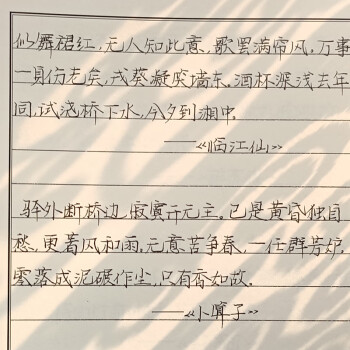 似舞裙红，无人知此意，歌罢满帘风，万事
一身伤老矣，戎葵凝笑墙东。酒杯深浅去年
同，试浇桥下水，今夕到湘中。
——《临江仙》
驿外断桥边，寂寞开无主。已是黄昏独自
愁，更著风和雨。无意苦争春，一任群芳妒，
零落成泥碾作尘，只有香如故。
——《小算子》